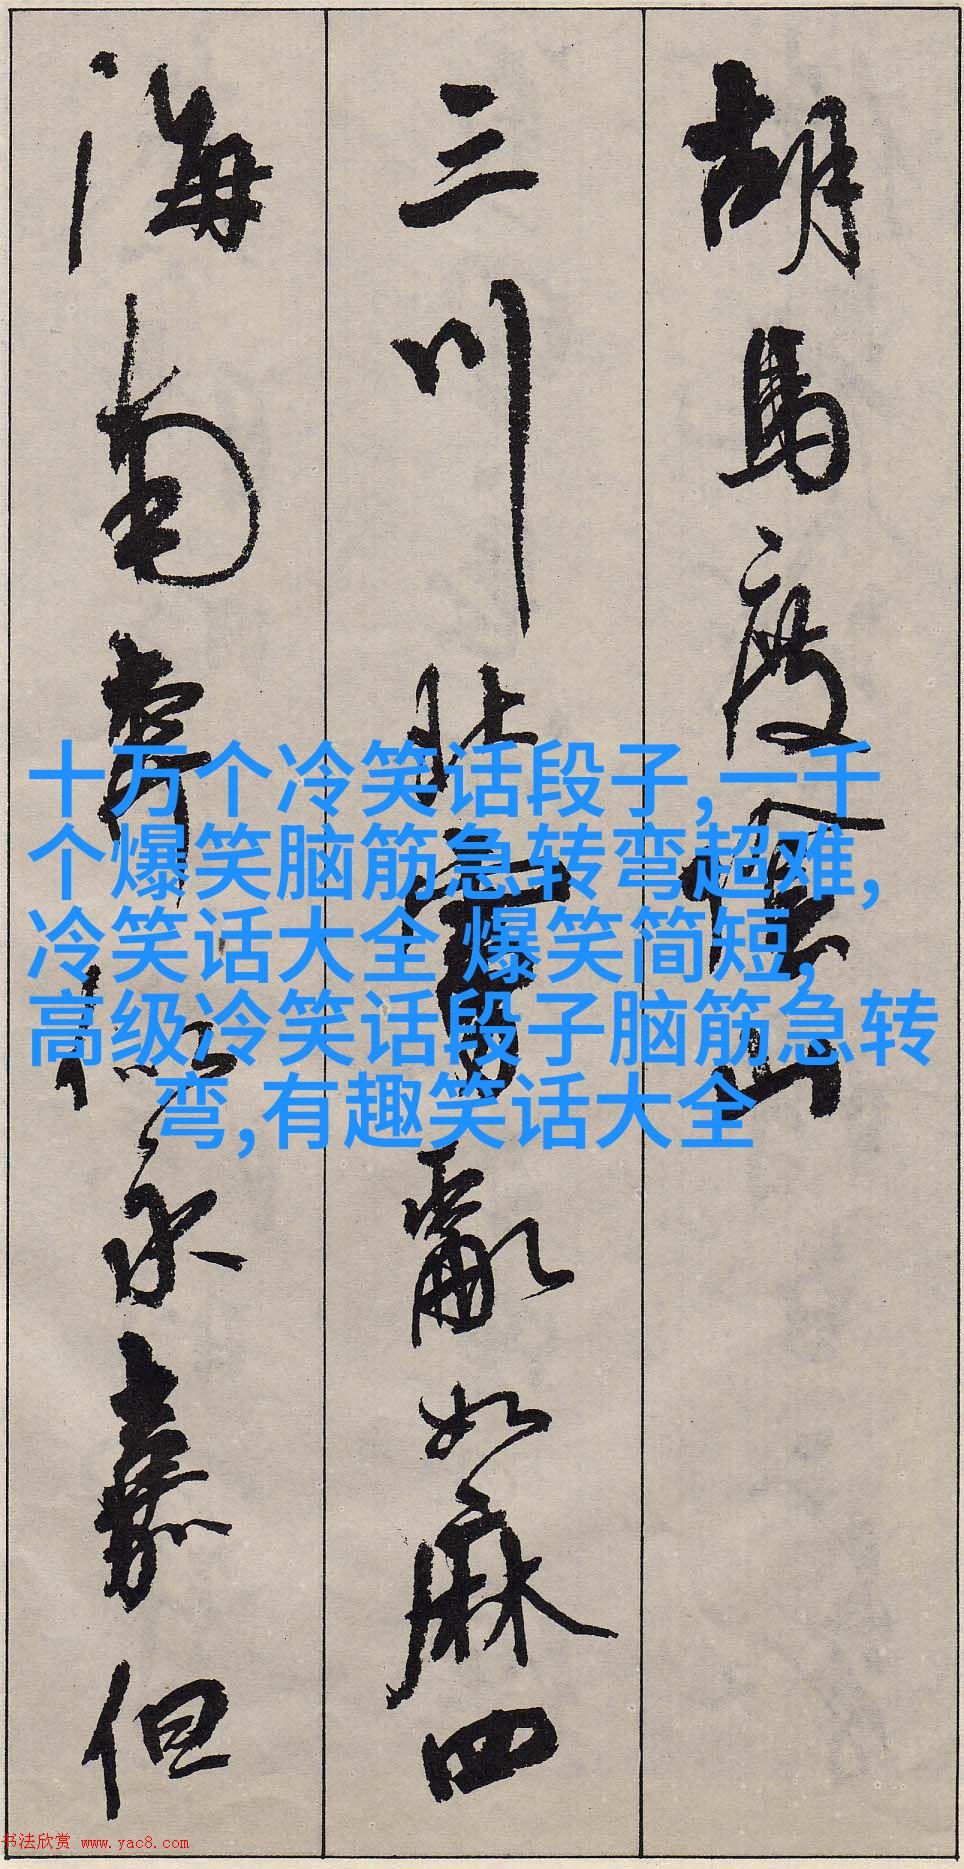 胡馬度陰山
三川北虜亂如麻四
海南奔似永嘉但
十万个冷笑话段子,一千
个爆笑脑筋急转弯超难,
冷笑话大全 爆笑简短,
高级冷笑话段子脑筋急转
弯,有趣笑话大全
书法欣赏 www.yac8.com